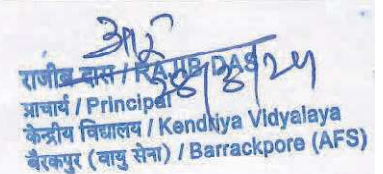 राजीब दास / RAJIB DAS
प्राचार्य / Principal
केन्द्रीय विद्यालय / Kendriya Vidyalaya
बैरकपुर (वायु सेना) / Barrackpore (AFS)